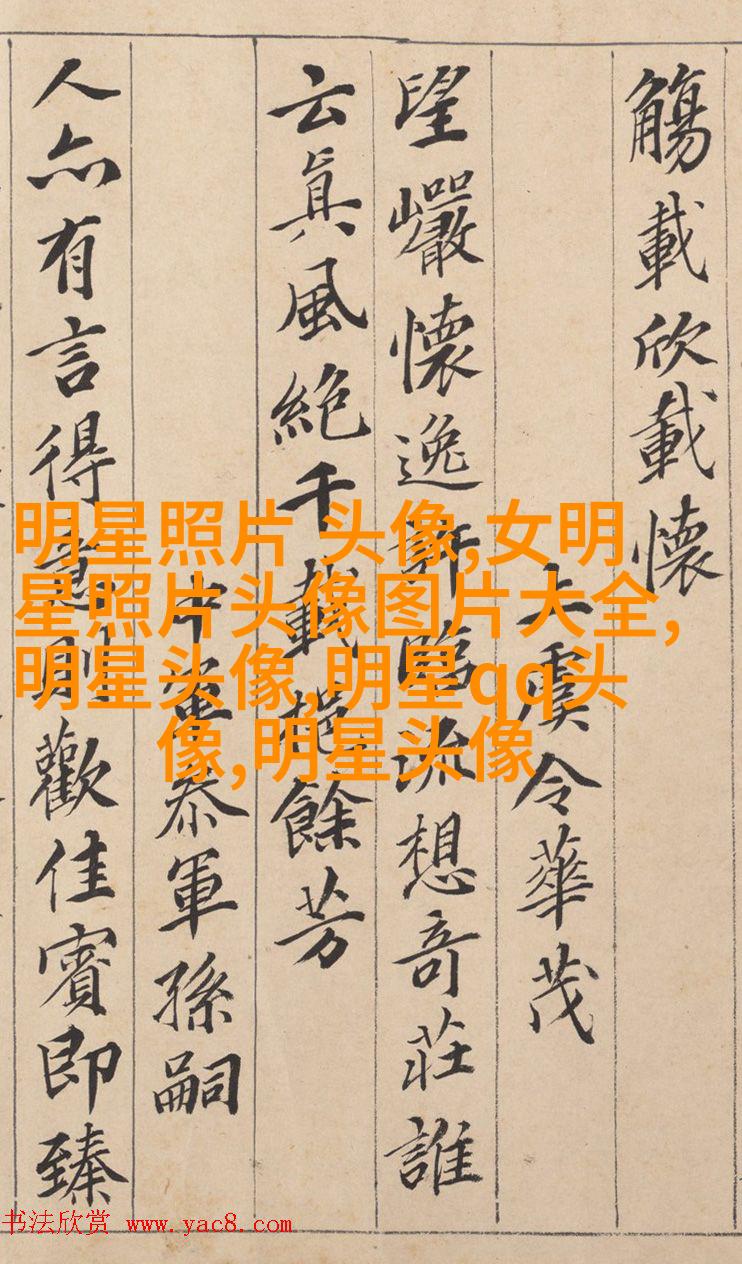 觴載欣載懷
上虞令華茂
望巖懷逸許臨流想奇莊誰
云眞風絕千載挹餘芳
中軍叅軍孫嗣
人亦有言得意則歡佳賓即臻
明星照片 头像,女明
星照片头像图片大全,
明星头像,明星qq头
像,明星头像
书法欣赏 www.yac8.com